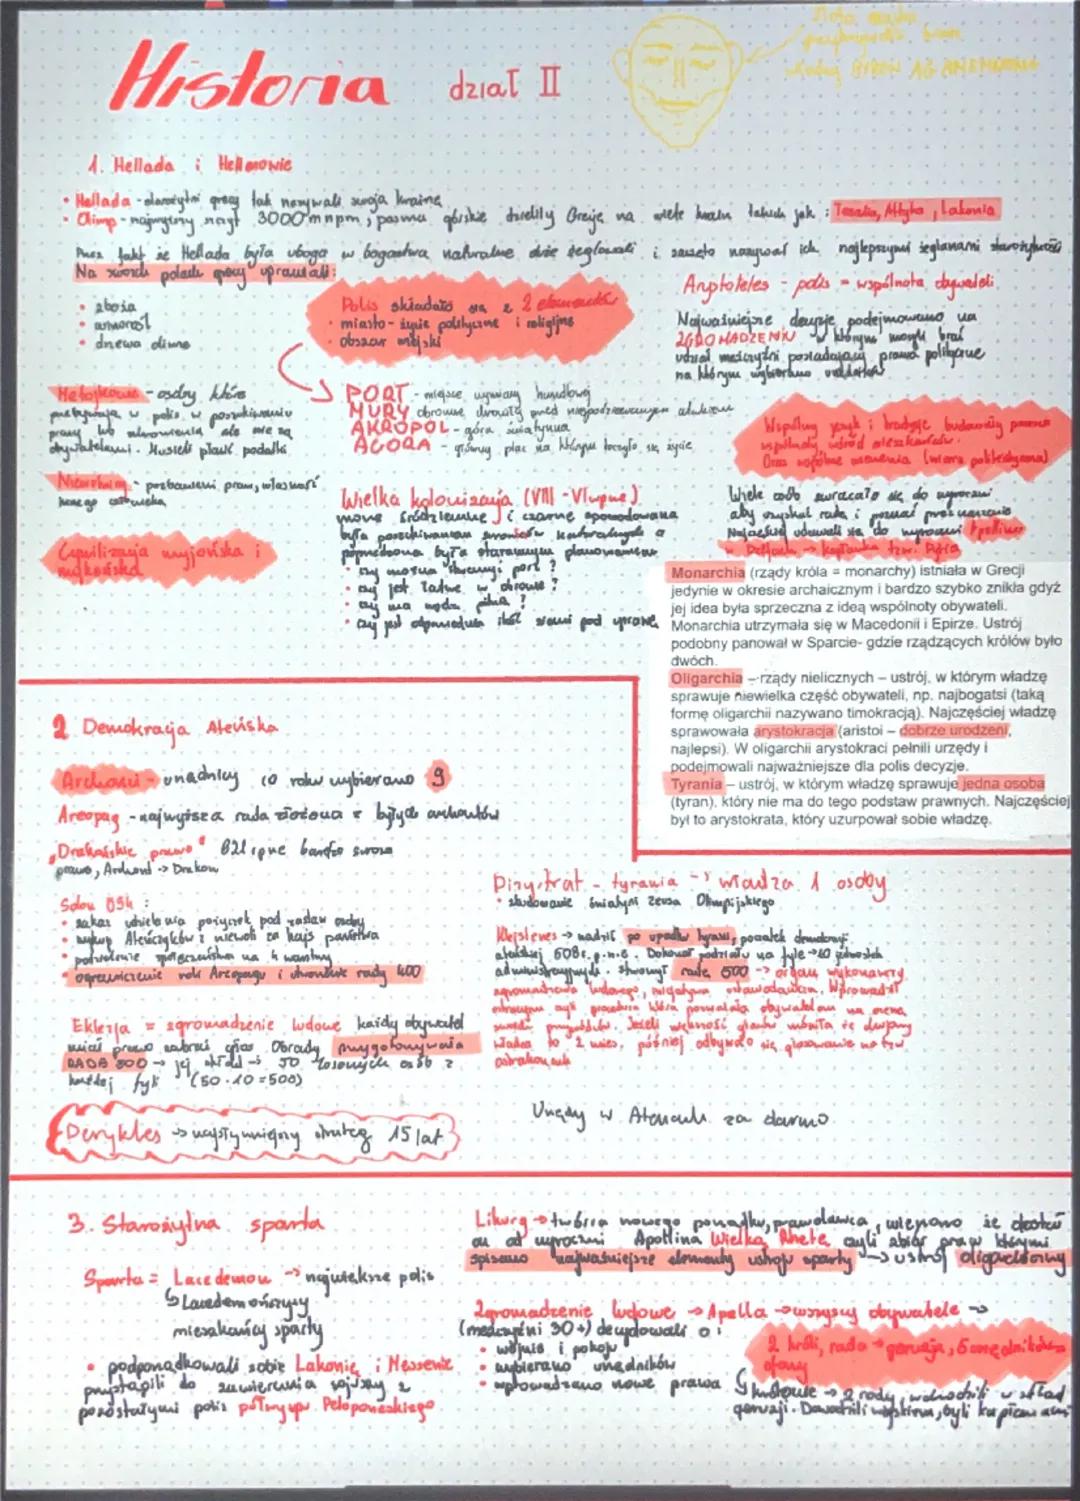 Historia dział II
1. Hellada i Hellenowie
• Hellada - starożytni grecy tak nazywali swoją krainę
• Olimp - najwyższy szczyt 3000 m npm, pasma górskie dzieliły Grecję na wiele krain takich jak : Tesalia, Attyka, Lakonia
Przez fakt że Hellada była uboga w bogactwa naturalne dużo żeglowali i zaczęto nazywać ich najlepszymi żeglarzami starożytności
Na swoich polach grecy uprawiali:
• zboża
• winorośl
• drzewa oliwne
Polis składało się z 2 elementów
• miasto - życie polityczne i religijne
• obszar miejski
Arystoteles - polis = wspólnota obywateli
Najważniejsze decyzje podejmowano na
ZGROMADZENIU w którym mogli brać
udział mężczyźni posiadający prawa polityczne
na którym wybierano
PORT - miejsce wymiany handlowej
MURY obronne chroniły przed niespodziewanym atakiem
AKROPOL - góra, świątynia
AGORA - główny plac na którym toczyło się życie
Metojkowie - osoby które
przebywają w polis w poszukiwaniu
pracy lub ale nie są
obywatelami. Musieli płacić podatki
Niewolnicy - pozbawieni praw, własność
innego człowieka
Cywilizacja minojska i
mykeńska
Wspólny język i tradycje budowały
wspólnoty wśród mieszkańców.
Oraz wspólne wierzenia (wiara politeistyczna)
Wielka kolonizacja (VIII - VI w pne)
morze śródziemne i czarne spowodowana
była poszukiwaniem surowców naturalnych a
poprzedzona była starannym planowaniem
• czy można stworzyć port ?
• czy jest łatwe w obronie ?
• czy ma wodę pitną ?
• czy jest odpowiednia ilość ziemi pod uprawę
Wiele osób zwracało się do wyroczni
aby uzyskać radę i poznać przeznaczenie
Najczęściej udawali się do wyroczni Apollina
w Delfach -> kapłanka tzw. Pytia
Monarchia (rządy króla = monarchy) istniała w Grecji
jedynie w okresie archaicznym i bardzo szybko znikła gdyż
jej idea była sprzeczna z ideą wspólnoty obywateli.
Monarchia utrzymała się w Macedonii i Epirze. Ustrój
podobny panował w Sparcie- gdzie rządzących królów było
dwóch.
Oligarchia – rządy nielicznych – ustrój, w którym władzę
sprawuje niewielka część obywateli, np. najbogatsi (taką
formę oligarchii nazywano timokracją). Najczęściej władzę
sprawowała arystokracja (aristoi – dobrze urodzeni,
najlepsi). W oligarchii arystokraci pełnili urzędy i
podejmowali najważniejsze dla polis decyzje.
Tyrania – ustrój, w którym władzę sprawuje jedna osoba
(tyran), który nie ma do tego podstaw prawnych. Najczęściej
był to arystokrata, który uzurpował sobie władzę.
2 Demokracja Ateńska
Archonci - urzędnicy co roku wybierano 9
Areopag - najwyższa rada złożona z byłych archontów
"Drakońskie prawo" 621 r pne bardzo surowe
prawo, Archont -> Drakon
Solon 594 :
• zakaz udzielania pożyczek pod zastaw osoby
• wykup Ateńczyków z niewoli za hajs państwa
• podzielenie społeczeństwa na 4 warstwy
• ograniczenie roli Areopagu i utworzenie rady 400
Eklezja = zgromadzenie ludowe każdy obywatel
miał prawo zabrać głos. Obrady przygotowywała
RADA 500 -> jej skład -> 50 losowych osób z
każdej fyli (50 · 10 = 500)
Perykles -> najsłynniejszy strateg 15 lat
Pizystrat - tyrania -> władza 1 osoby
• zbudowanie świątyni Zeusa Olimpijskiego
Klejstenes -> nadzić po upadku tyranii, początek demokracji
ateńskiej 508 r. p.n.e. Dokonał podziału na fyle -> 10 jednostek
administracyjnych. Stworzył radę 500 -> organ wykonawczy
zgromadzenia ludowego, inicjatywa ustawodawcza. Wprowadził
ostracyzm czyli procedura która pozwalała obywatelom na
Jeżeli większość głosów mówiła że
władza to 2 mies. później odbywało się głosowanie na tzw
ostrakonach
Urzędy w Atenach za darmo
3. Starożytna sparta
Sparta = Lacedemon -> największe polis
Lacedemończycy
mieszkańcy sparty
• podporządkowali sobie Lakonię i Messenię
przystąpili do zawierania sojuszy z
pozostałymi polis półwyspu Peloponeskiego
Likurg -> twórca nowego porządku, prawodawca, wierzono że dostał
on od wyroczni Apollina Wielką Rhetę czyli zbiór praw którymi
spisano najważniejsze elementy ustroju sparty -> ustrój oligarchiczny
Zgromadzenie ludowe -> Apella -> wszyscy obywatele ->
(mężczyźni 30+) decydowali o :
• wojnie i pokoju
• wybierano urzędników
• wprowadzano nowe prawa
2 króli, rada -> geruzja, 5 urzędników
eforzy
Królowie -> 2 rody, wchodzili w skład
geruzji. Dowodzili wojskiem, byli kapłanami